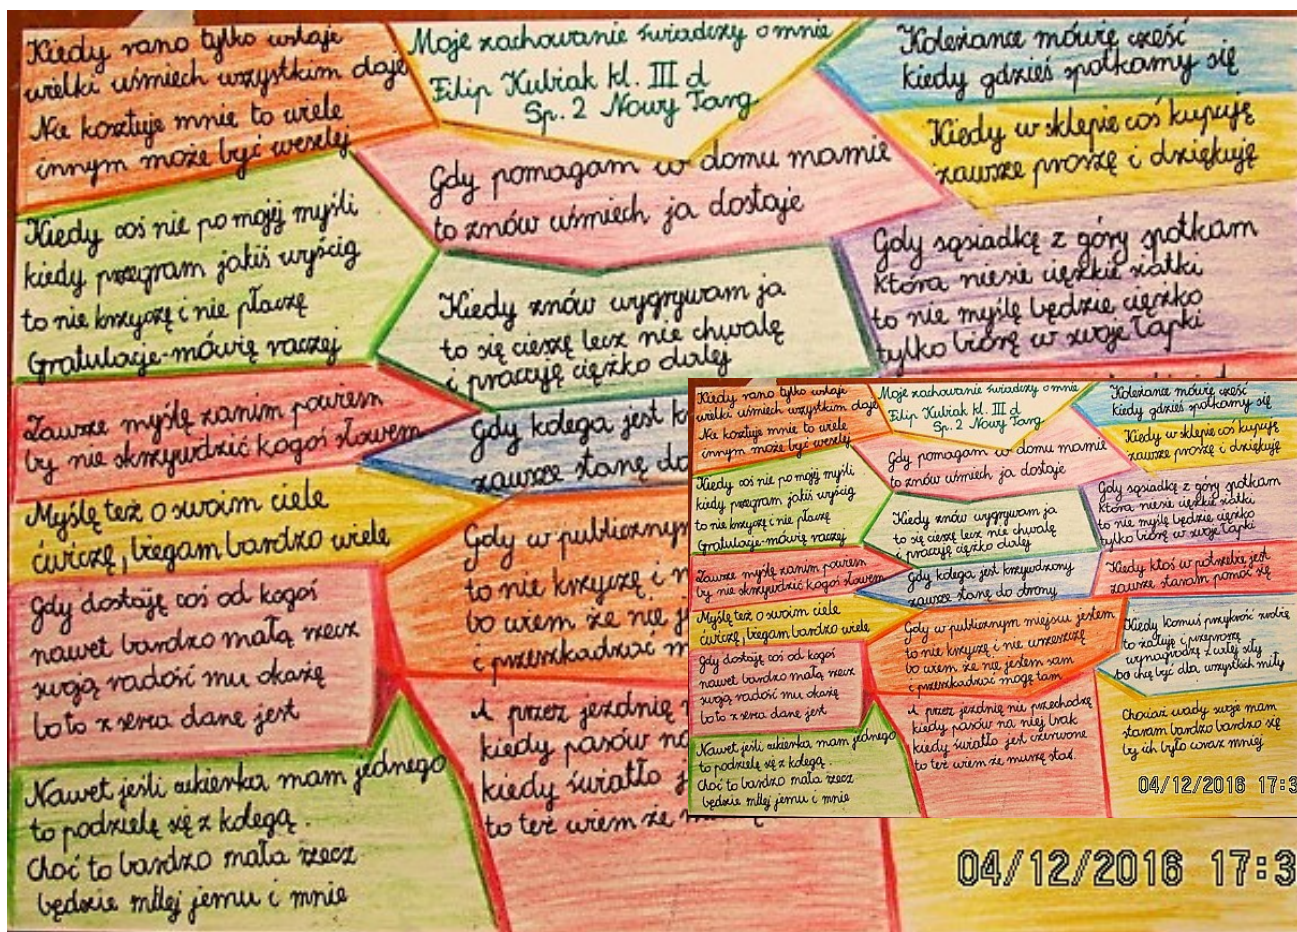 Moje zachowanie świadczy o mnie
Filip Kubiak kl. III d
Sp. 2 Nowy Targ
Kiedy rano tylko wstaje
wielki uśmiech wszystkim daje
Nie kosztuje mnie to wiele
innym może być weselej
Koleżance mówię cześć
kiedy gdzieś spotkamy się
Kiedy w sklepie coś kupuję
zawsze proszę i dziękuję
Gdy pomagam w domu mamie
to znów uśmiech ja dostaje
Kiedy coś nie po mojej myśli
kiedy przegram jakiś wyścig
to nie krzyczę i nie płaczę
Gratulacje-mówię raczej
Kiedy znów wygrywam ja
to się cieszę lecz nie chwalę
i pracuję ciężko dalej
Gdy sąsiadkę z góry spotkam
która niesie ciężkie siatki
to nie myślę będzie ciężko
tylko biorę w swoje łapki
Zawsze myślę zanim powiem
by nie skrzywdzić kogoś słowem
Gdy kolega jest k
zawsze stanę do
Myślę też o swoim ciele
ćwiczę, biegam bardzo wiele
Gdy w publicznym
to nie krzyczę i n
bo wiem że nie j
i przeszkadzać m
Gdy dostaję coś od kogoś
nawet bardzo małą rzecz
swoją radość mu okażę
bo to z serca dane jest
A przez jezdnię n
kiedy pasów na
kiedy światło j
to też wiem że m
Nawet jeśli cukierka mam jednego
to podzielę się z kolegą.
Choć to bardzo mała rzecz
będzie milej jemu i mnie
04/12/2016 17:3
Moje zachowanie świadczy o mnie
Filip Kubiak kl. III d
Sp. 2 Nowy Targ
Kiedy rano tylko wstaje
wielki uśmiech wszystkim daje
Nie kosztuje mnie to wiele
innym może być weselej
Koleżance mówię cześć
kiedy gdzieś spotkamy się
Kiedy w sklepie coś kupuję
zawsze proszę i dziękuję
Gdy pomagam w domu mamie
to znów uśmiech ja dostaje
Kiedy coś nie po mojej myśli
kiedy przegram jakiś wyścig
to nie krzyczę i nie płaczę
Gratulacje-mówię raczej
Kiedy znów wygrywam ja
to się cieszę lecz nie chwalę
i pracuję ciężko dalej
Gdy sąsiadkę z góry spotkam
która niesie ciężkie siatki
to nie myślę będzie ciężko
tylko biorę w swoje łapki
Zawsze myślę zanim powiem
by nie skrzywdzić kogoś słowem
Gdy kolega jest krzywdzony
zawsze stanę do obrony
Kiedy ktoś w potrzebie jest
zawsze staram pomóc się
Myślę też o swoim ciele
ćwiczę, biegam bardzo wiele
Gdy w publicznym miejscu jestem
to nie krzyczę i nie wrzeszczę
bo wiem że nie jestem sam
i przeszkadzać mogę tam
Kiedy komuś przykrość zrobię
to żałuję i przeproszę
wynagrodzę z całej siły
bo chcę być dla wszystkich miły
Gdy dostaję coś od kogoś
nawet bardzo małą rzecz
swoją radość mu okażę
bo to z serca dane jest
A przez jezdnię nie przechodzę
kiedy pasów na niej brak
kiedy światło jest czerwone
to też wiem że muszę stać.
Chociaż wady swoje mam
staram bardzo bardzo się
by ich było coraz mniej
Nawet jeśli cukierka mam jednego
to podzielę się z kolegą.
Choć to bardzo mała rzecz
będzie milej jemu i mnie
04/12/2016 17:3